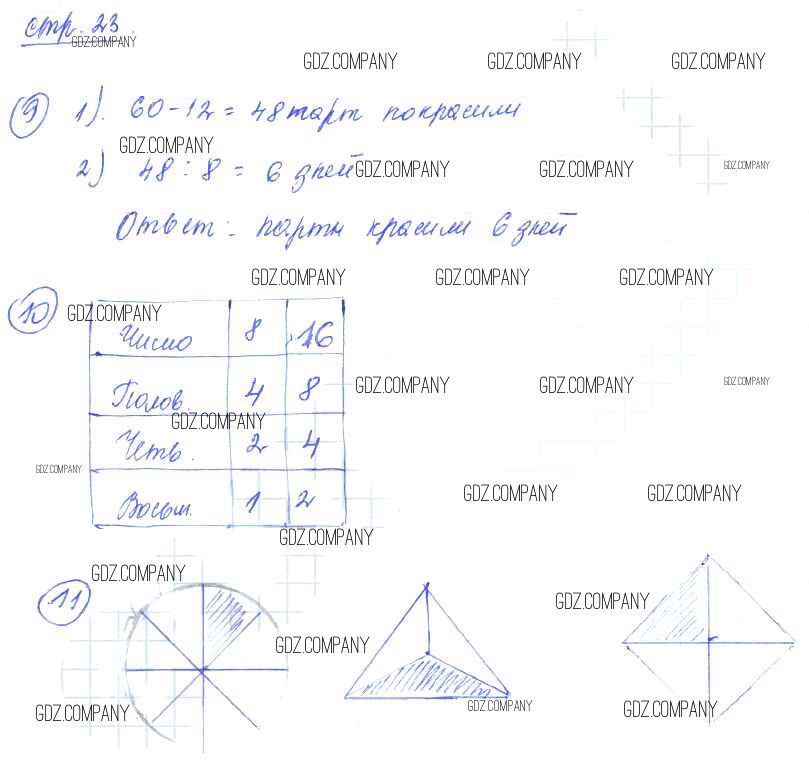 стр. 23.
GDZ.COMPANY
GDZ.COMPANY GDZ.COMPANY GDZ.COMPANY
9 1). 60-12 = 48 парт покрасили
GDZ.COMPANY
2) 48 : 8 = 6 дней
GDZ.COMPANY GDZ.COMPANY GDZ.COMPANY
Ответ: парты красили 6 дней
GDZ.COMPANY GDZ.COMPANY GDZ.COMPANY
10
GDZ.COMPANY
Число 8 16
Полов. 4 8
GDZ.COMPANY GDZ.COMPANY GDZ.COMPANY
GDZ.COMPANY
Четв. 2 4
GDZ.COMPANY
Восьм. 1 2
GDZ.COMPANY GDZ.COMPANY
GDZ.COMPANY
11
GDZ.COMPANY
GDZ.COMPANY
GDZ.COMPANY
GDZ.COMPANY GDZ.COMPANY GDZ.COMPANY